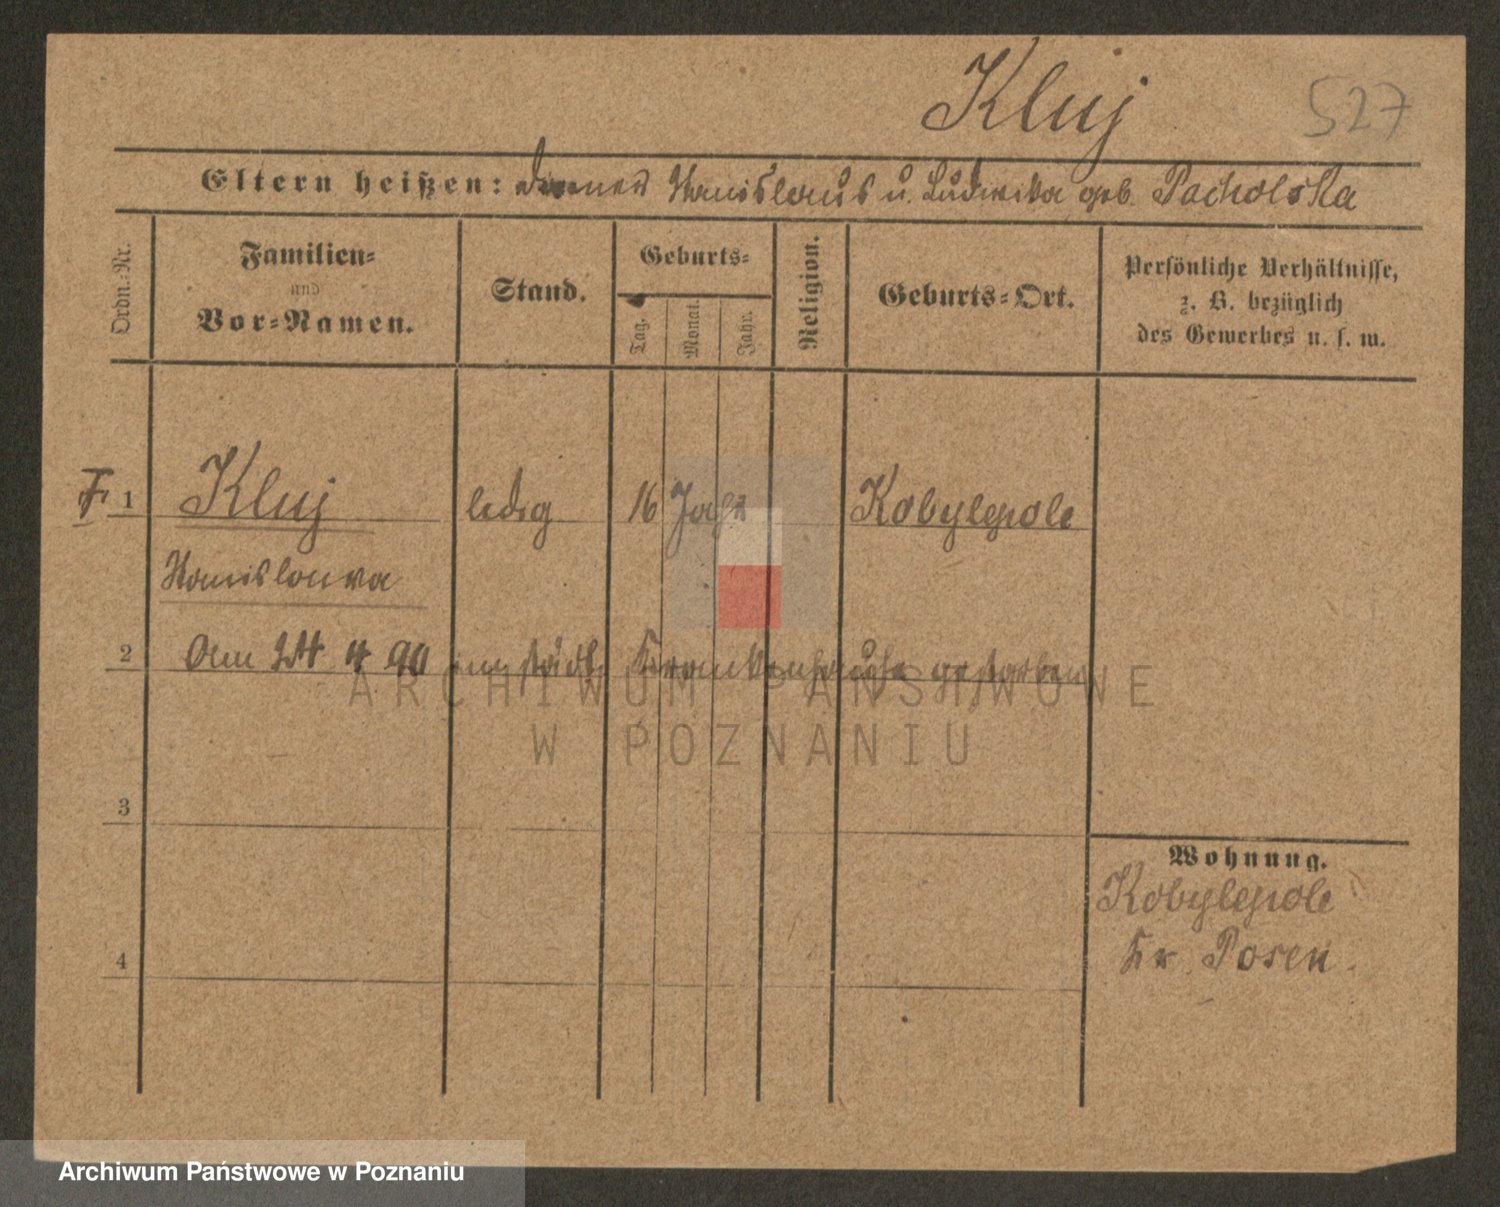 Kluj
527
Eltern heißen: Stanislaus u. Ludwika geb. Pacholska
Ordn.-Nr.
Familien-
und
Vor-Namen.
Stand.
Geburts-
Tag.
Monat.
Jahr.
Religion.
Geburts-Ort.
Persönliche Verhältnisse,
z. B. bezüglich
des Gewerbes u. s. w.
1 Kluj ledig 16 Jahr Kobylepole
Stanislowa
2 Am 24 4 90 im städt Krankenhause gestorben
ARCHIWUM PAŃSTWOWE
W POZNANIU
3
Wohnung.
Kobylepole
Kr. Posen.
4
Archiwum Państwowe w Poznaniu